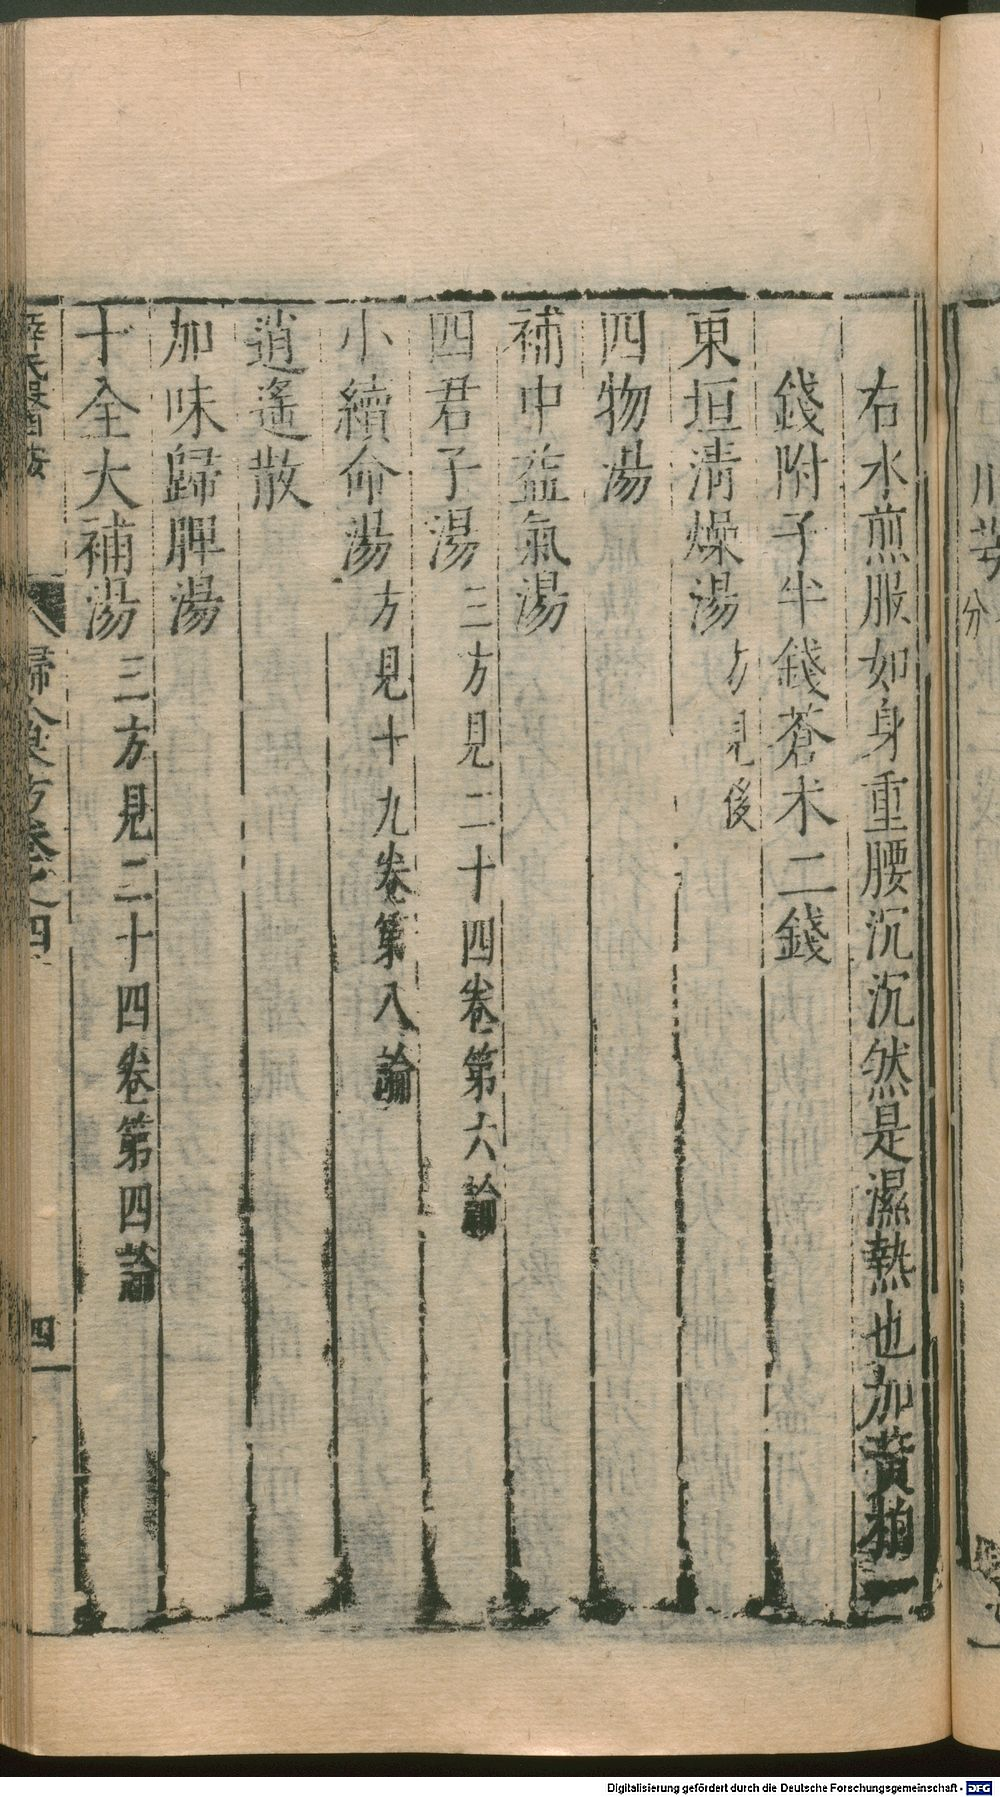 右水煎服如身重腰沉沉然是濕熱也加黃柏一
錢附子半錢蒼术二錢
東垣清燥湯方見後
四物湯
補中益氣湯
四君子湯三方見二十四卷第六論
小續命湯方見十九卷第八論
逍遙散
加味歸脾湯
十全大補湯三方見二十四卷第四論
薛氏醫案 婦人良方卷之四 四
川芎
分
Digitalisierung gefördert durch die Deutsche Forschungsgemeinschaft - DFG